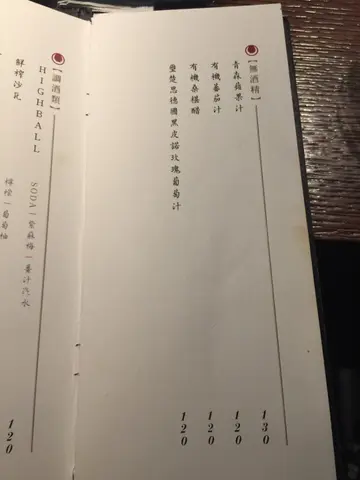 【無酒精】
青森蘋果汁 130
有機蕃茄汁 120
有機桑椹醋 120
楚思德國黑皮諾玫瑰葡萄汁 120
【調酒類】
HIGHBALL SODA|紫蘇梅|薑汁汽水 120
鮮榨沙瓦 檸檬|葡萄柚